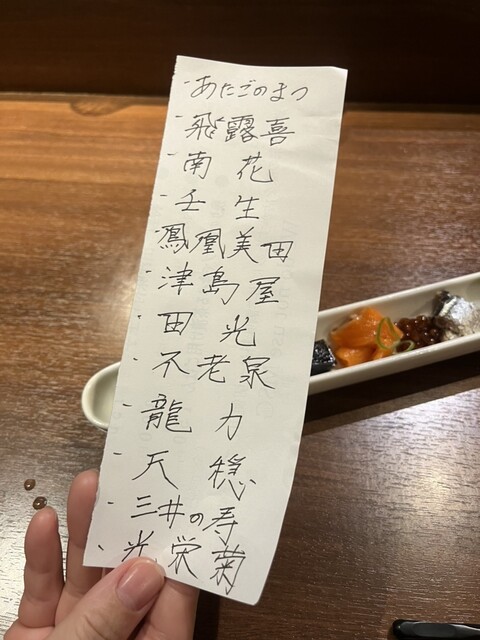 ・あたごのまつ
・飛露喜
・南花
・壬生
・鳳凰美田
・津島屋
・田光
・不老泉
・龍力
・天穏
・三井の寿
・光栄菊